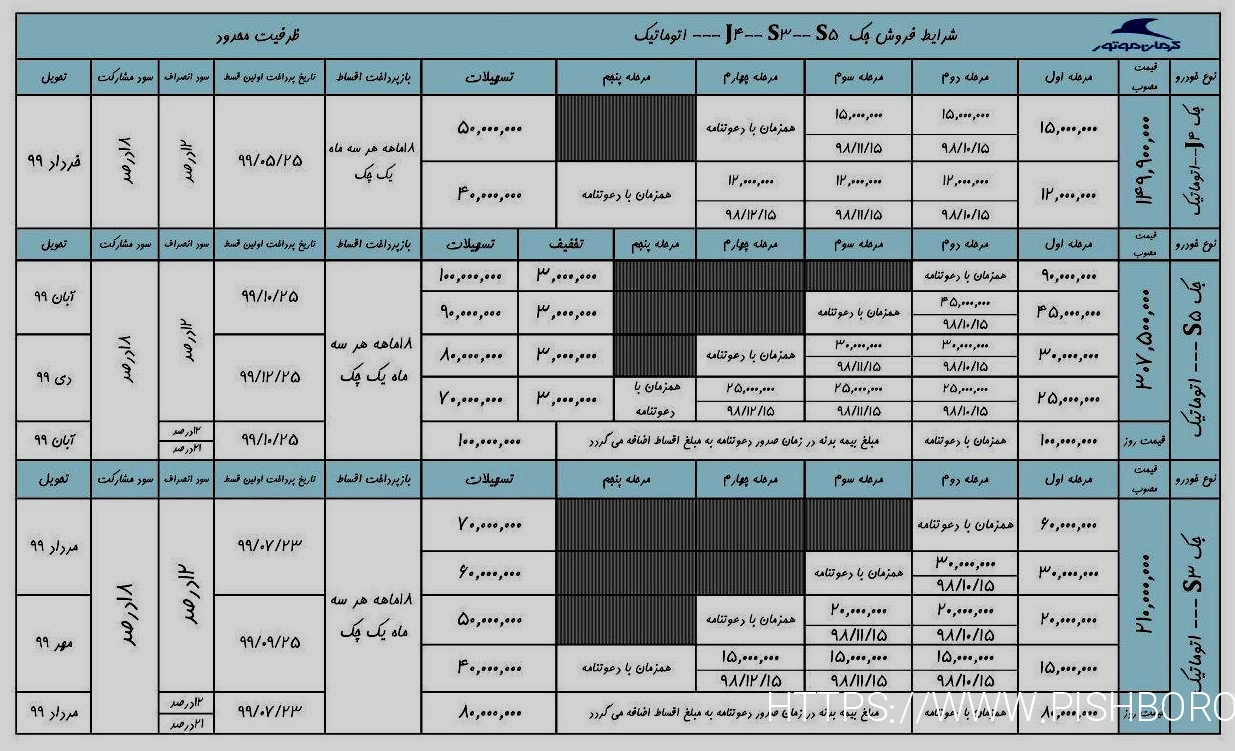 شرایط فروش جک S5 --S3 --J4 --- اتوماتیک
ظرفیت محدود
کرمان موتور
نوع خودرو
قیمت مصوب
مرحله اول
مرحله دوم
مرحله سوم
مرحله چهارم
مرحله پنجم
تسهیلات
بازپرداخت اقساط
تاریخ پرداخت اولین قسط
سود انصراف
سود مشارکت
تحویل
جک J4--اتوماتیک
۱۴۹,۹۰۰,۰۰۰
۱۵,۰۰۰,۰۰۰
۱۵,۰۰۰,۰۰۰
۹۸/۱۰/۱۵
۱۵,۰۰۰,۰۰۰
۹۸/۱۱/۱۵
همزمان با دعوتنامه
۵۰,۰۰۰,۰۰۰
۱۲,۰۰۰,۰۰۰
۱۲,۰۰۰,۰۰۰
۹۸/۱۰/۱۵
۱۲,۰۰۰,۰۰۰
۹۸/۱۱/۱۵
۱۲,۰۰۰,۰۰۰
۹۸/۱۲/۱۵
همزمان با دعوتنامه
۴۰,۰۰۰,۰۰۰
۱۸ماهه هر سه ماه
یک چک
۹۹/۰۵/۲۵
۱۲درصد
۱۸درصد
خرداد ۹۹
نوع خودرو
قیمت مصوب
مرحله اول
مرحله دوم
مرحله سوم
مرحله چهارم
مرحله پنجم
تخفیف
تسهیلات
بازپرداخت اقساط
تاریخ پرداخت اولین قسط
سود انصراف
سود مشارکت
تحویل
جک S5 --- اتوماتیک
۳۰۷,۵۰۰,۰۰۰
۹۰,۰۰۰,۰۰۰
همزمان با دعوتنامه
۳,۰۰۰,۰۰۰
۱۰۰,۰۰۰,۰۰۰
۴۵,۰۰۰,۰۰۰
۴۵,۰۰۰,۰۰۰
۹۸/۱۰/۱۵
همزمان با دعوتنامه
۳,۰۰۰,۰۰۰
۹۰,۰۰۰,۰۰۰
۳۰,۰۰۰,۰۰۰
۳۰,۰۰۰,۰۰۰
۹۸/۱۰/۱۵
۳۰,۰۰۰,۰۰۰
۹۸/۱۱/۱۵
همزمان با دعوتنامه
۳,۰۰۰,۰۰۰
۸۰,۰۰۰,۰۰۰
۲۵,۰۰۰,۰۰۰
۲۵,۰۰۰,۰۰۰
۹۸/۱۰/۱۵
۲۵,۰۰۰,۰۰۰
۹۸/۱۱/۱۵
۲۵,۰۰۰,۰۰۰
۹۸/۱۲/۱۵
همزمان با
دعوتنامه
۳,۰۰۰,۰۰۰
۷۰,۰۰۰,۰۰۰
۱۸ماهه هر سه
ماه یک چک
۹۹/۱۰/۲۵
۹۹/۱۲/۲۵
۱۲درصد
۱۸درصد
آبان ۹۹
دی ۹۹
قیمت روز
۱۰۰,۰۰۰,۰۰۰
همزمان با دعوتنامه
مبلغ بیمه بدنه در زمان صدور دعوتنامه به مبلغ اقساط اضافه می گردد
۱۰۰,۰۰۰,۰۰۰
۹۹/۱۰/۲۵
۱۲درصد
۲۱درصد
آبان ۹۹
نوع خودرو
قیمت مصوب
مرحله اول
مرحله دوم
مرحله سوم
مرحله چهارم
مرحله پنجم
تسهیلات
بازپرداخت اقساط
تاریخ پرداخت اولین قسط
سود انصراف
سود مشارکت
تحویل
جک S3 --- اتوماتیک
۲۱۰,۰۰۰,۰۰۰
۶۰,۰۰۰,۰۰۰
همزمان با دعوتنامه
۷۰,۰۰۰,۰۰۰
۳۰,۰۰۰,۰۰۰
۳۰,۰۰۰,۰۰۰
۹۸/۱۰/۱۵
همزمان با دعوتنامه
۶۰,۰۰۰,۰۰۰
۲۰,۰۰۰,۰۰۰
۲۰,۰۰۰,۰۰۰
۹۸/۱۰/۱۵
۲۰,۰۰۰,۰۰۰
۹۸/۱۱/۱۵
همزمان با دعوتنامه
۵۰,۰۰۰,۰۰۰
۱۵,۰۰۰,۰۰۰
۱۵,۰۰۰,۰۰۰
۹۸/۱۰/۱۵
۱۵,۰۰۰,۰۰۰
۹۸/۱۱/۱۵
۱۵,۰۰۰,۰۰۰
۹۸/۱۲/۱۵
همزمان با دعوتنامه
۴۰,۰۰۰,۰۰۰
۱۸ماهه هر سه
ماه یک چک
۹۹/۰۷/۲۳
۹۹/۰۹/۲۵
۱۲درصد
۱۸درصد
مرداد ۹۹
مهر ۹۹
قیمت روز
۸۰,۰۰۰,۰۰۰
همزمان با دعوتنامه
مبلغ بیمه بدنه در زمان صدور دعوتنامه به مبلغ اقساط اضافه می گردد
۸۰,۰۰۰,۰۰۰
۹۹/۰۷/۲۳
۱۲درصد
۲۱درصد
مرداد ۹۹
HTTPS://WWW.PISHBORO